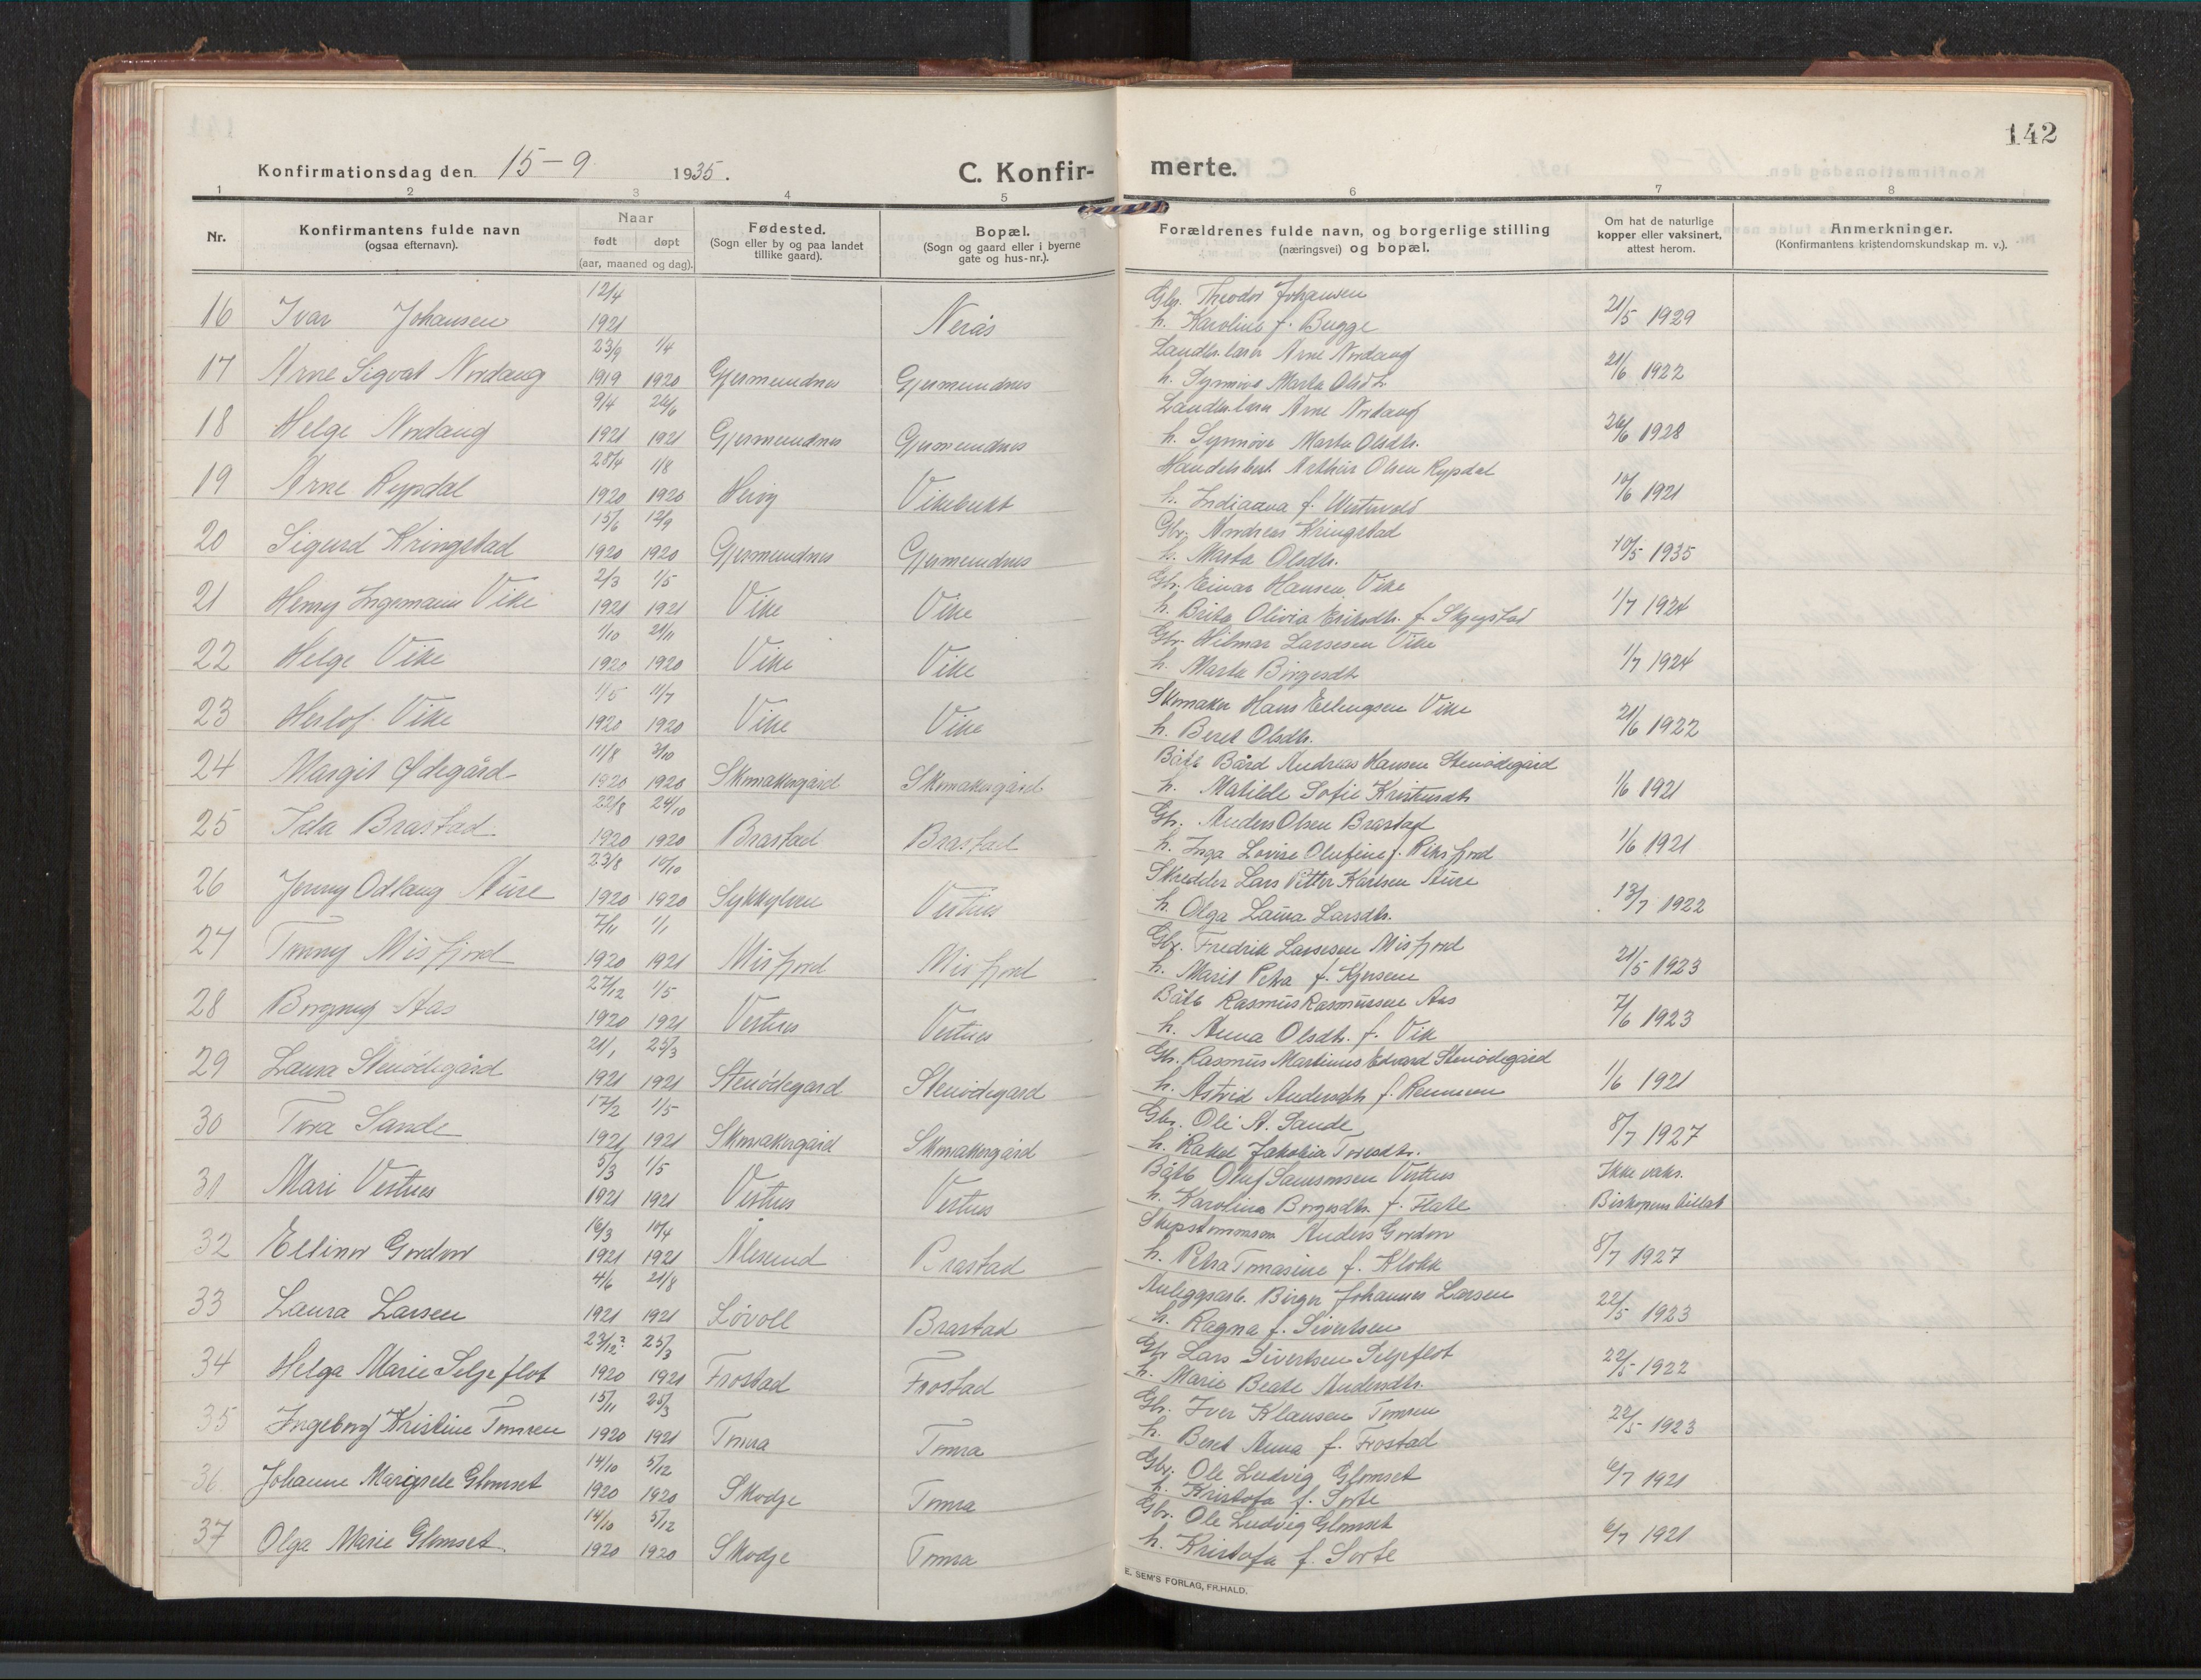 142
Konfirmationsdag den 15-9 1935.
C. Konfirmerte.
1 2 3 4 5 6 7 8
Nr.
Konfirmantens fulde navn
(ogsaa efternavn).
Naar
født døpt
(aar, maaned og dag).
Fødested.
(Sogn eller by og paa landet
tillike gaard).
Bopæl.
(Sogn og gaard eller i byerne
gate og hus-nr.).
Forældrenes fulde navn, og borgerlige stilling
(næringsvei) og bopæl.
Om hat de naturlige
kopper eller vaksinert,
attest herom.
Anmerkninger.
(Konfirmantens kristendomskundskap m. v.).
12/4 Gbr. Theodor Johansen
16 Ivar Johansen 1921 Nerås h. Karoline f. Bugge 21/5 1929
23/9 1/4 Arne Nordaug
17 Arne Sigvat Nordaug 1919 1920 Gjermundnes Gjermundnes h. Synnöve Marta Olsdt. 21/6 1922
9/4 26/6 Arne Nordaug
18 Helge Nordaug 1921 1921 Gjermundnes Gjermundnes h. Synnöve Marta Olsdtr. 26/6 1928
28/4 1/8 Handelsbest. Arthur Olsen Rypdal
19 Arne Rypdal 1920 1920 Vikebukt h. Indianna f. 10/6 1921
15/6 12/9 Gbr. Andreas Kringstad
20 Sigurd Kringstad 1920 1920 Gjermundnes Gjermundnes h. Marta Olsdtr. 10/5 1935
2/3 1/5 Gbr. Einar Hansen Vike
21 Henry Ingemann Vike 1921 1921 Vike Vike h. Brita Olivia Eriksdtr. f. 1/7 1924
1/10 21/11 Gbr. Hilmar Larsesen Vike
22 Helge Vike 1920 1920 Vike Vike h. Marta Börgesdtr 1/7 1924
1/5 11/7 Skomaker Hans Ellingsen Vike
23 Herlof Vike 1920 1920 Vike Vike h. Beret Olsdtr. 21/6 1922
11/8 3/10 Båtb Bård Andreas Hansen Stenödegård
24 Margit Ødegård 1920 1920 Skomakergård Skomakergård h. Matilde Sofie 1/6 1921
22/8 24/10 Gbr. Anders Olsen Brastad
25 Ida Brastad 1920 1920 Brastad Brastad h. Inga Lovise Olufine f. Riksfjord 1/6 1921
23/8 10/10 Skredder Lars Petter Karlsen Aure
26 Jenny Odlaug Aure 1920 1920 Sykkylven Vestnes h. Olga Laura Larsdtr. 13/7 1922
7/11 1/1 Gbr. Fredrik Larsesen Misfjord
27 Tonny Misfjord 1920 1921 Misfjord Misfjord h. Marit Petra f. Kjersem 21/5 1923
27/12 1/5 Båtb Rasmus Rasmussen Aas
28 Borgny Aas 1920 1921 Vestnes Vestnes h. Anna Olsdtr. f. Vik 7/6 1923
21/1 25/3 Gbr. Rasmus Martinus Edvard Stenödegård
29 Laura Stenödegård 1921 1921 Stenödegard Stenödegard h. Astrid Andersdtr f. Remmem 1/6 1921
17/2 1/5 Gbr. Ole A. Sande
30 Tora Sande 1921 1921 Skomakergård Skomakergård h. Rakel Jakobia Toresdtr. 8/7 1927
5/3 1/5 Båtb Oluf Samsonsen Vestnes Ikke vaks.
31 Mari Vestnes 1921 1921 Vestnes Vestnes h. Karoline Borgesdtr. f. Flate Biskopens tillat
16/3 10/4 Skipstømmerm Anders Gordon
32 Ellinor Gordon 1921 1921 Ålesund Brastad h. Petra Tomasine f. Klokk 8/7 1927
4/6 21/8 Anleggsarb. Birger Johannes Larsen
33 Laura Larsen 1921 1921 Lövoll Brastad h. Ragna f. Sivertsen 22/5 1923
23/12? 25/3 Gbr Lars Sivertsen Seljeflot
34 Helga Marie Seljeflot 1920 1921 Frostad Frostad h. Marie Beate Andersdtr. 22/5 1922
15/11 25/3 Gbr. Iver Klausen Tomren
35 Ingeborg Kristine Tomren 1920 1921 Tomra Tomra h. Beret Anna f. Frostad 22/5 1923
14/10 5/12 Gbr. Ole Ludvig Glomset
36 Johanne Margrete Glomset 1920 1920 Skodje Tomra h. Kristofa f. Sorte 6/7 1921
14/10 5/12 Gbr. Ole Ludvig Glomset
37 Olga Marie Glomset. 1920 1920 Skodje Tomra h. Kristofa f. Sorte 6/7 1921
E. SEM'S FORLAG, FR.HALD.